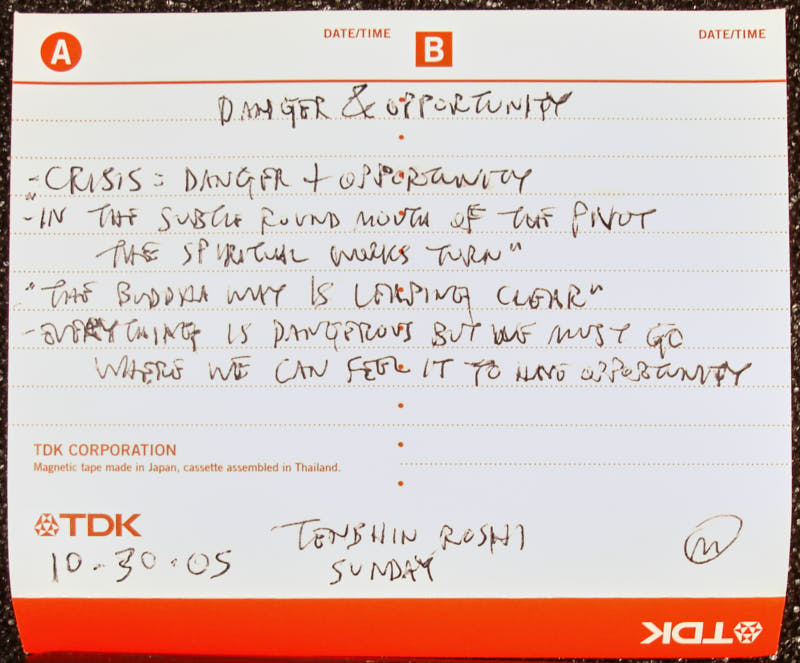 A DATE/TIME B DATE/TIME
DANGER & OPPORTUNITY
- CRISIS = DANGER + OPPORTUNITY
"- IN THE SUBTLE ROUND MOUTH OF THE PIVOT
THE SPIRITUAL WORKS TURN"
"THE BUDDHA WAY IS LEAPING CLEAR"
- EVERYTHING IS DANGEROUS BUT WE MUST GO
WHERE WE CAN FEEL IT TO HAVE OPPORTUNITY
TDK CORPORATION
Magnetic tape made in Japan, cassette assembled in Thailand.
TDK
TENSHIN ROSHI
10-30-05
SUNDAY
M
TDK